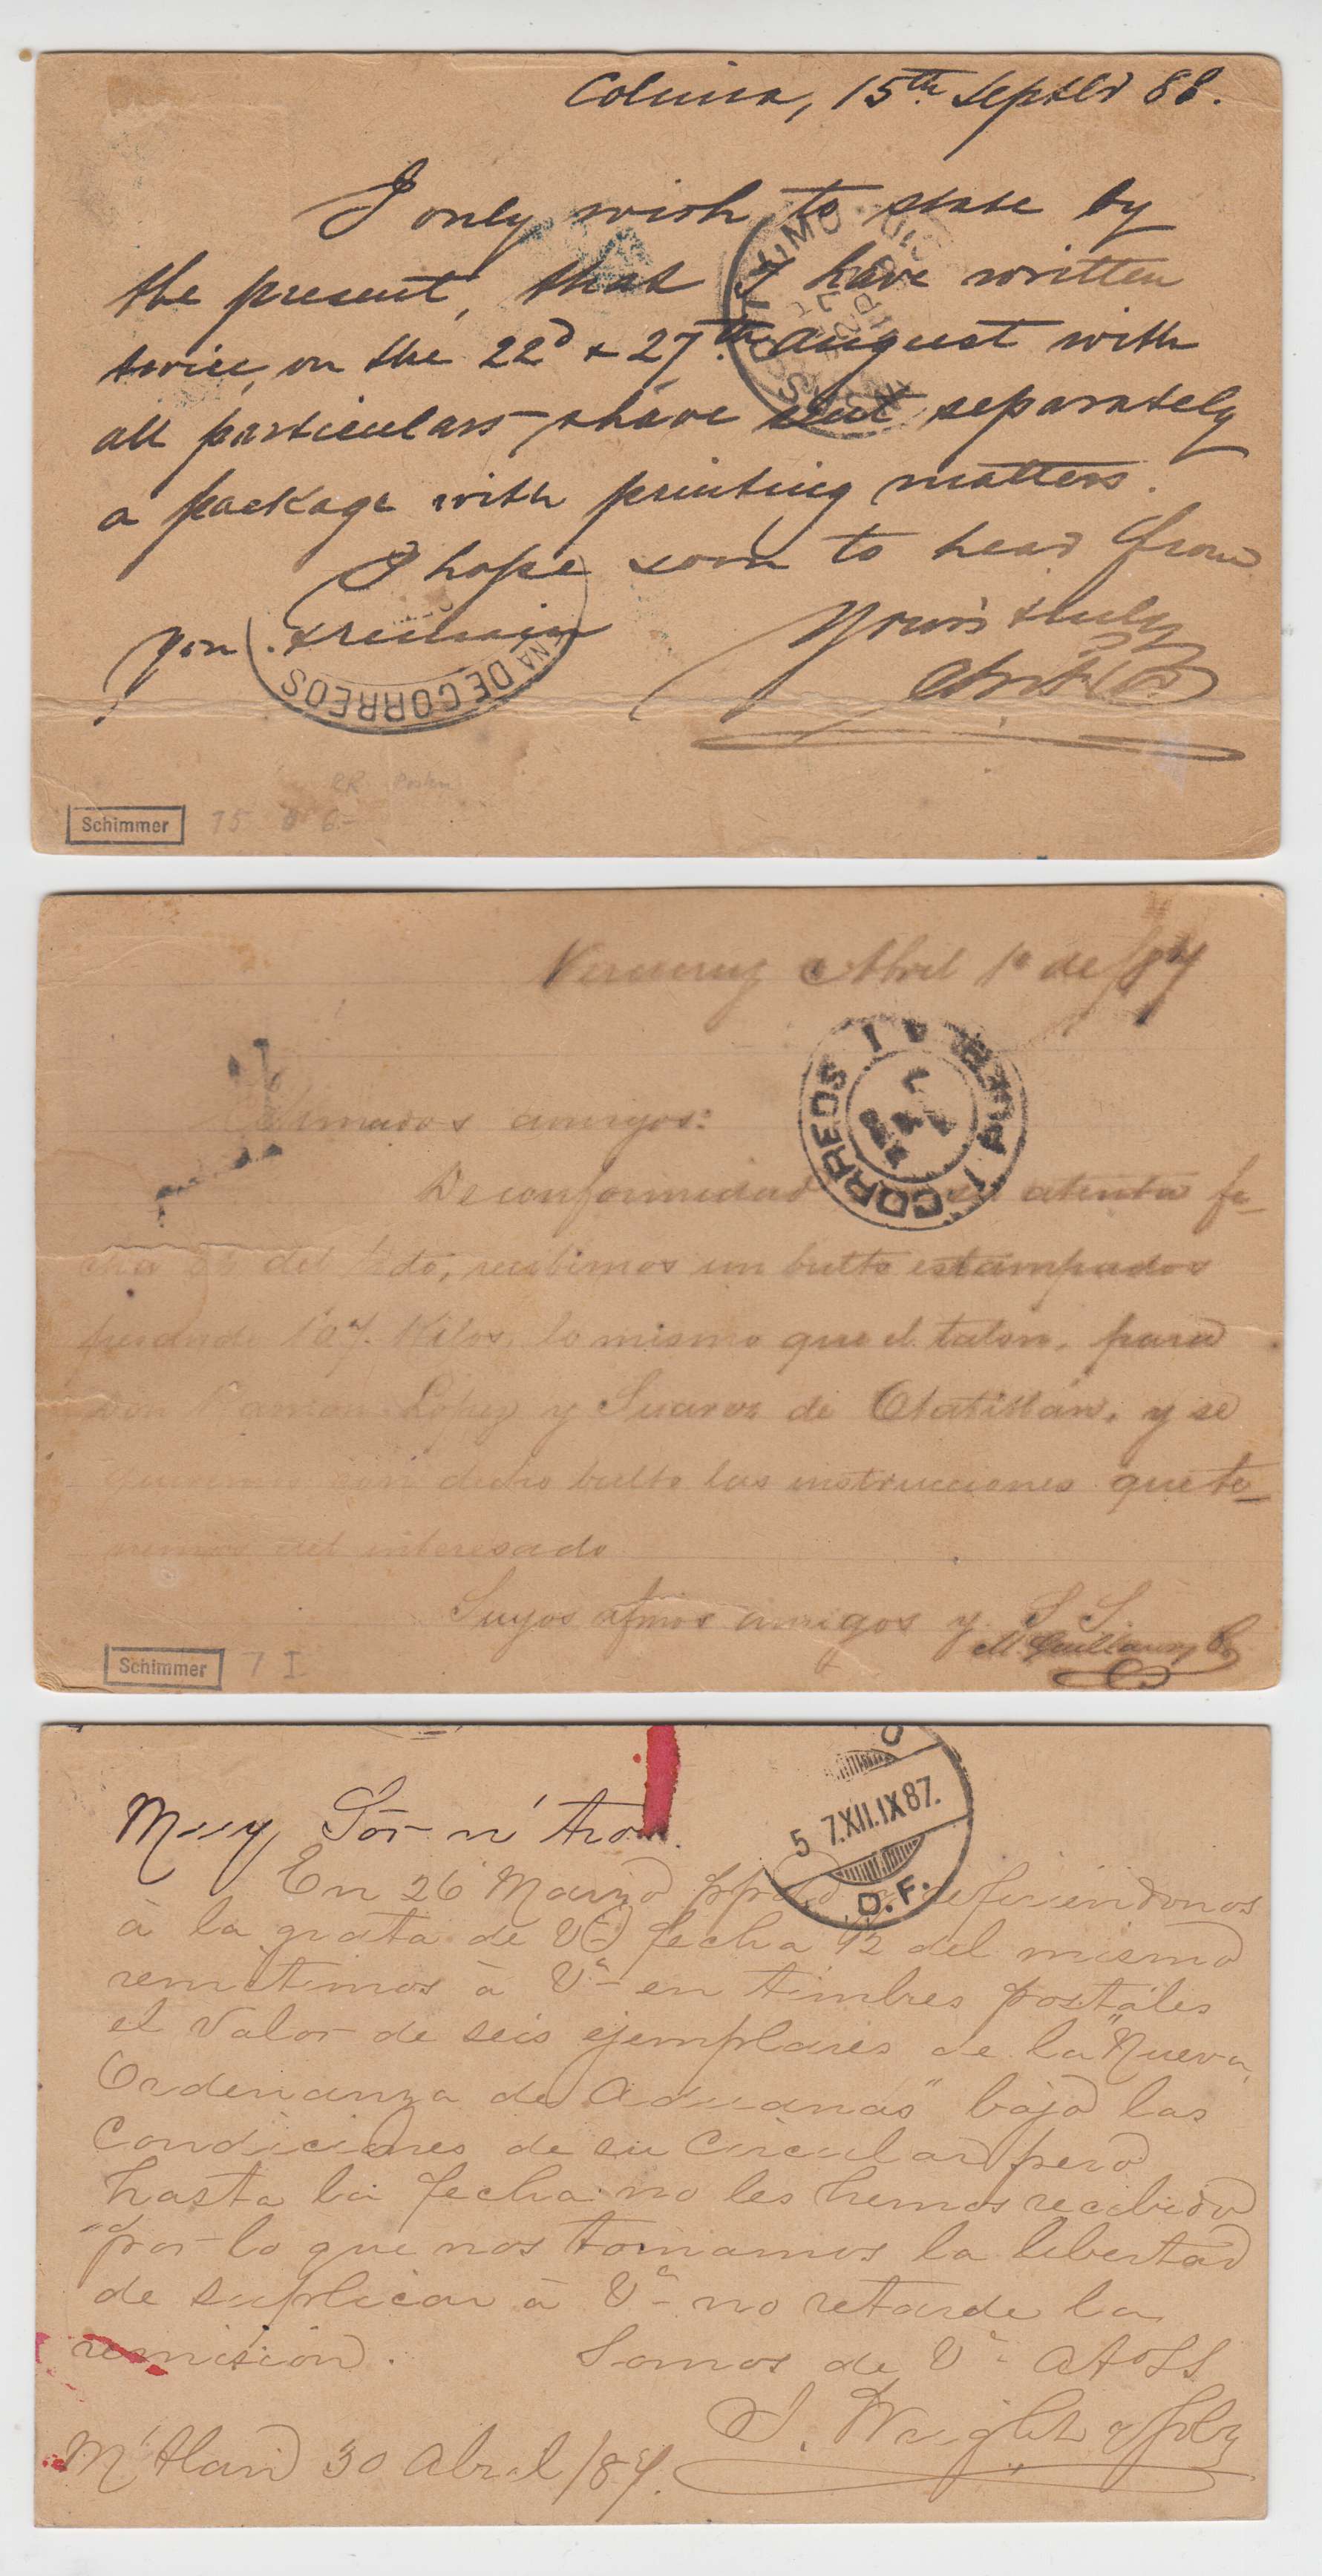 Colima, 15th Septbr 88.
I only wish to state by
the present, that I have written
twice, on the 22d & 27th August with
all particulars & have sent separately
a package with printing matters.
I hope soon to hear from
you & remain
Yours truly
NA DE CORREOS
Schimmer
Veracruz Abril 1º de /87
Estimados amigos:
De conformidad su atenta fe-
cha del pdo, recibimos un bulto estampados
pesando 107 Kilos, lo mismo que el talon, para
don Ramon Lopez y Suarez de Tlatillan, y se
con dicho bulto las instrucciones que te-
nemos del interesado
Suyos afmos amigos y S S.
M. Guillaun y Ca
CORREOS
Schimmer 7 I
Muy Sor ntro.
En 26 Marzo ppdo refiriendonos
à la grata de Vd fecha 12 del mismo
remitimos à Va en timbres postales
el valor de seis ejemplares de la "Nueva
Ordenanza de Aduanas" bajo las
condiciones de su circular pero
hasta la fecha no les hemos recibido
por lo que nos tomamos la libertad
de suplicar à Va no retarde la
remision.
Somos de Va attoSS
J. Wright
M'tlan 30 Abril /87.
5 7.XII.IX87.
D.F.